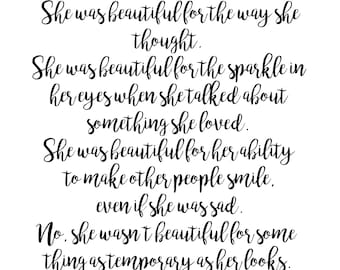 She was beautiful for the way she
thought.
She was beautiful for the sparkle in
her eyes when she talked about
something she loved.
She was beautiful for her ability
to make other people smile,
even if she was sad.
No, she wasn't beautiful for some
thing as temporary as her looks.